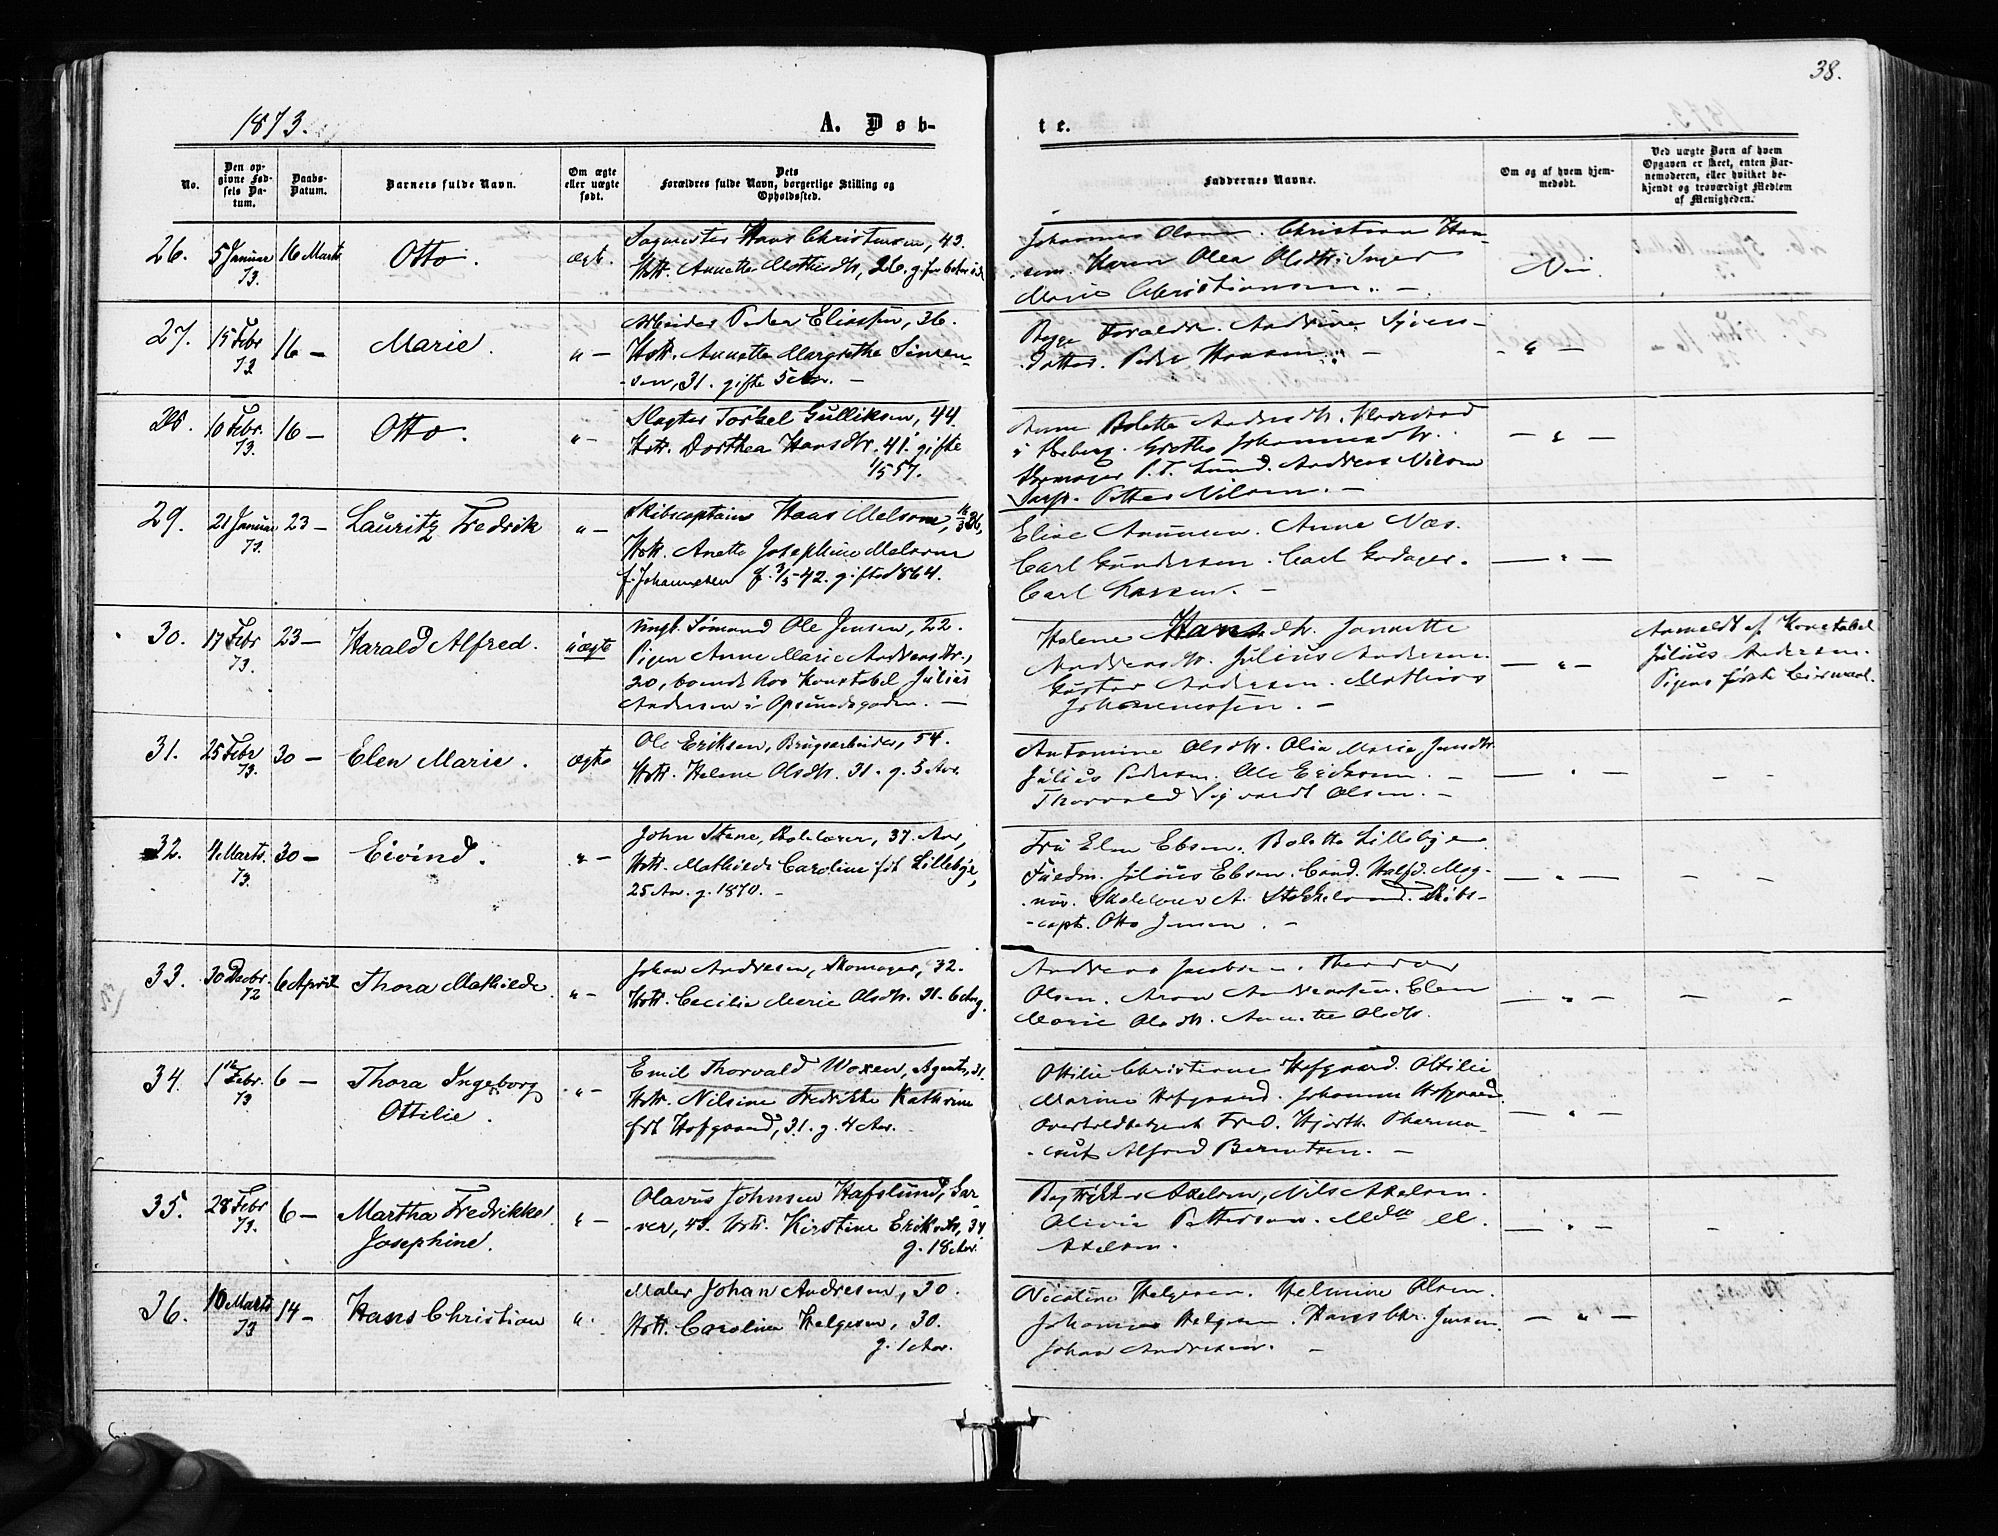 38.
1873.
A. Døb-
te.
No.
Den op-
givne Fød-
sels Da-
tum.
Daabs-
Datum.
Barnets fulde Navn.
Om ægte
eller uægte
født.
Dets
Forældres fulde Navn, borgerlige Stilling og
Opholdssted.
Faddernes Navne.
Om og af hvem hjem-
medøbt.
Ved uægte Børn af hvem
Opgaven er skeet, enten Bar-
nemoderen, eller hvilket be-
kjendt og troværdigt Medlem
af Menigheden.
26.
5 Januar
73.
16 Marts
Otto.
ægt.
Hans Christensen, 43.
Hstr. Annette Mothisdtr, 26. g. for 6 Aar
Johannes Olsen. Christian Han-
sen. Karen Olea Olsdtr. Inger
Marie Christiansen. -
Nei.
27.
15 Febr
73
16 -
Marie.
" -
Arbeider Peder Eliassen, 36.
Hstr. Annette Margrethe Simen-
-sen, 31. gifte 5 Aar. -
Begge Forældre. Andrine Syvers-
Datter. Peder Hansen. -
- " -
28.
10 Febr.
73.
16 -
Otto.
" -
Slagter Torkel Gulliksen, 44.
Hstr. Dorthea Hansdtr. 41. gifte
1/5 57.
Anne Bolette Andersdtr.
Grethe Johannesdtr.
P. T. Lund. Andreas Nilsen
Sarp. Petter Nilsen. -
- " -
29.
21 Januar
73.
23 -
Lauritz Fredrik
" -
Skibscaptain Haas Melsom, 36,
Hstr. Anette Josephine Melsom
f. Johannesen f. 3/5-42. gifte 1864.
Elise Amunsen. Anne Næs.
Carl Gundersen. Carl Godager.
Carl Lassen. -
- " -
30.
17 Febr
73.
23 -
Harald Alfred.
uægte
Ungk. Sømand Ole Jensen, 22.
Pigen Anne Marie Andreasdtr.,
20, boende hos Konstabel Julius
Andersen i Opsundsgaden. -
Helene Hansdtr. Jannette
Andreasdtr. Julius Andersen.
Gustav Andersen. Mathias
Johannessen. -
- " -
Anmeldt af Konstabel
Julius Andersen.
Pigens første Leiermaal.
31.
25 Febr
73.
30 -
Elen Marie.
ægte
Ole Eriksen, Brugsarbeider, 54.
Hstr. Helene Olsdtr. 31. g. 5 Aar.
Antomine Olsdtr. Olia Maria Jensdtr.
Julius Pedersen. Ole Erichsen. -
Thorvald Sigvardt Olsen. -
- " -
- -
32.
4 Marts.
73.
30 -
Eivind.
" -
John Stene, Skolelærer, 37. Aar,
Hstr. Mathilde Caroline født Lillebye,
25 Aar. g. 1870. -
Fru Elen Ebsen. Bolette Lillebye.
Fuldm. Julius Ebsen. Cand. Halfd. Mag-
nus. Skolelærer A. Stokkeland. Skibs-
-capt. Otto Jensen. -
- " -
- -
33.
30 Decbr
72
6 April
Thora Mathilde
" -
Johan Andresen, Skomager, 32.
Hstr. Cecilia Marie Olsdtr. 31. 6 Aar g.
Andreas Jacobsen. Theodor
Olsen. Aron Andreassen. Elen
Marie Olsdtr. Annette Olsdtr.
- " -
- -
34.
1ste Febr.
73
6 -
Thora Ingeborg
Ottilie.
" -
Emil Thorvald Woxen, Agent, 31.
Hstr. Nilsine Fredrikke Kathrine
født Hofgaard, 31. g. 4 Aar.
Ottilie Christiane Hofgaard. Ottilie
Marine Hofgaard. Johannes Hofgaard
Overtoldbetjent Fred. Hjorth. Pharma-
-ceut Alfred Berntsen. -
- " -
35.
28 Febr
73.
6 -
Martha Fredrikke
Josephine.
" -
Olavus Johnsen Hafslund, Gar-
-ver, 43. Hstr. Kirstine Eriksdtr, 34.
g. 18 Aar.
Axelsen, Nils Axelsen.
Olivia Pettersen. Mda M.
Axelsen.
- " -
-
36.
10 Marts
73
14 -
Hans Christian
".
Maler Johan Andresen, 30.
Hstr. Caroline Helgesen, 30.
g. 1 Aar.
Nicoline Helgesen. Helmine Olsen.
Johannes Helgesen. Hans Chr. Jensen.
Johan Andresen. -
- " -